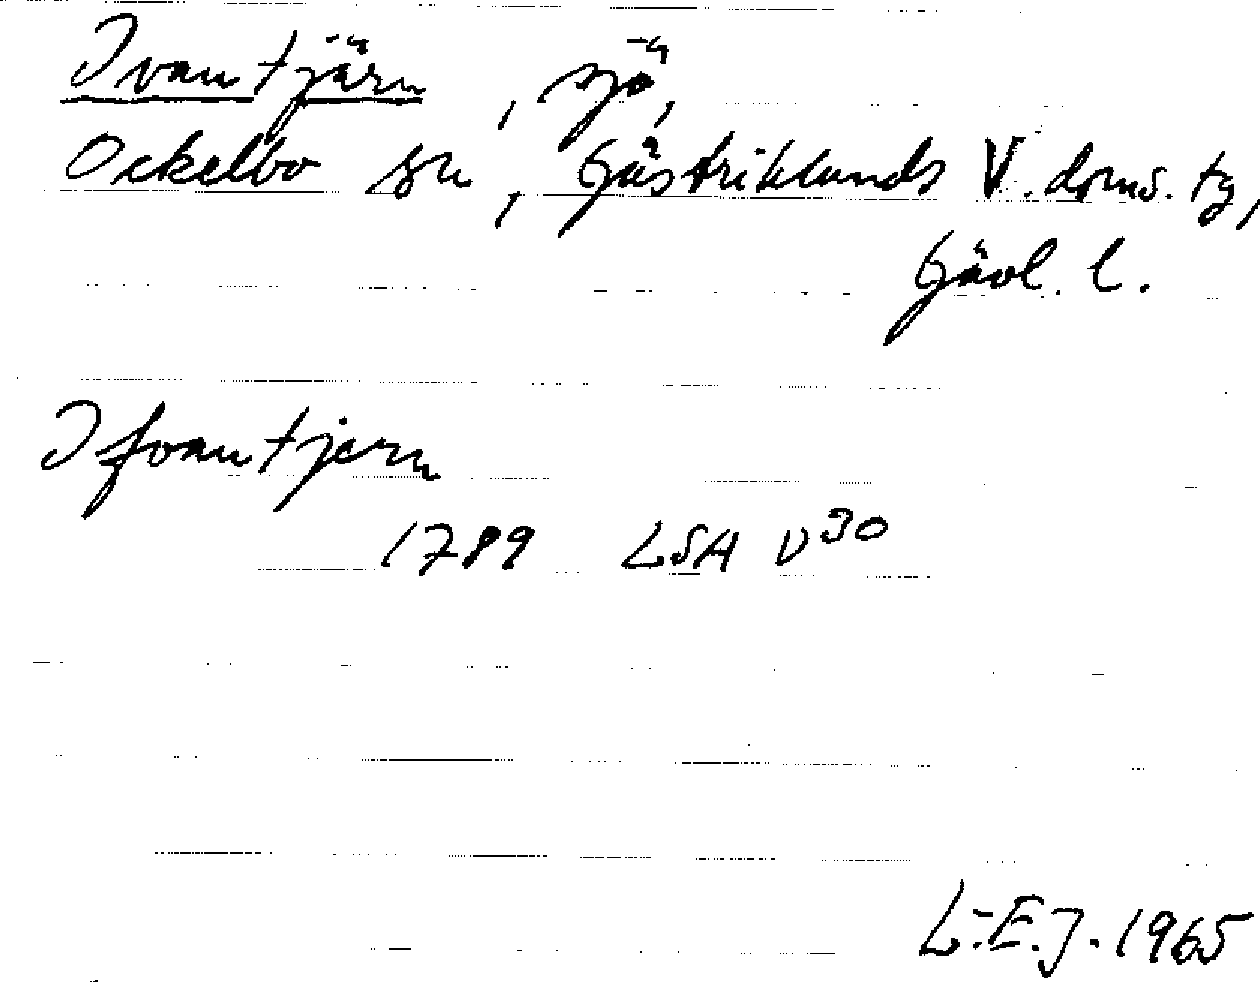 Ivantjärn, sjö,
Ockelbo sn, Gästriklands V. doms. tg,
Gävl. l.
Ifvantjern
1789 LSA V30
L.-E.J. 1965